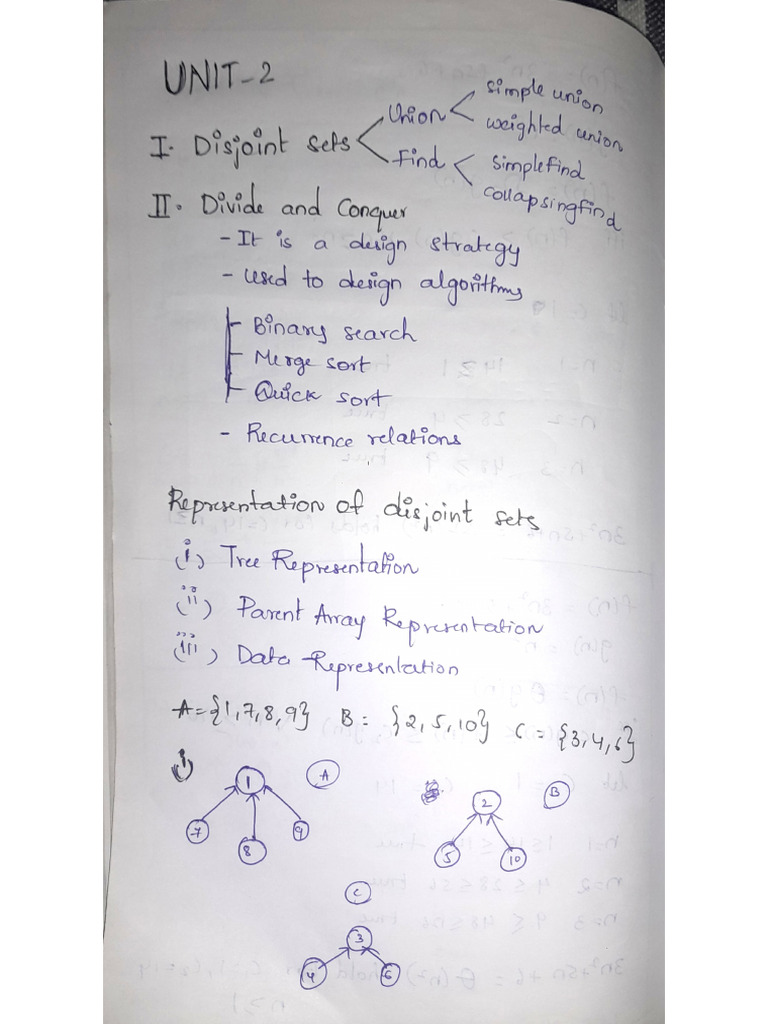 UNIT-2
simple union
Union
weighted union
I. Disjoint sets
Find
simplefind
collapsingfind
II. Divide and Conquer
- It is a design strategy
- used to design algorithms
- Binary search
- Merge sort
- Quick sort
- Recurrence relations
Representation of disjoint sets
(i) Tree Representation
(ii) Parent Array Representation
(iii) Data Representation
A={1,7,8,9} B= {2,5,10} C={3,4,6}
i)
1 A
7 8 9
2 B
5 10
C
3
4 6